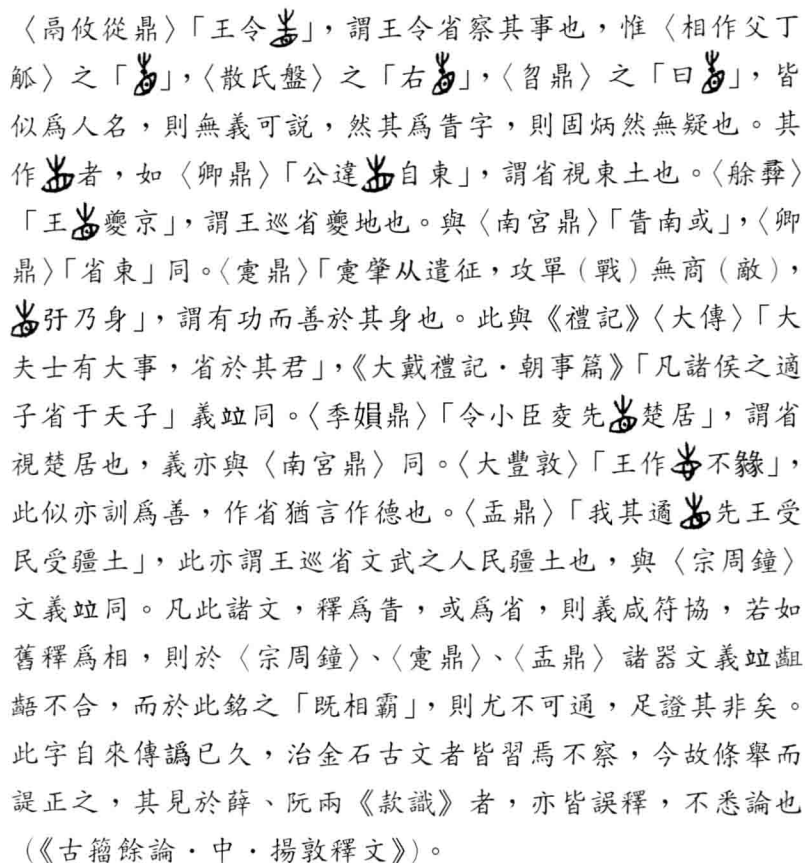 〈鬲攸從鼎〉「王令」，謂王令省察其事也，惟〈相作父丁
觚〉之「」，〈散氏盤〉之「右」，〈曶鼎〉之「曰」，皆
似爲人名，則無義可説，然其爲眚字，則固炳然無疑也。其
作者，如〈卿鼎〉「公違自東」，謂省視東土也。〈艅彝〉
「王夔京」，謂王巡省夔地也。與〈南宮鼎〉「眚南或」，〈卿
鼎〉「省東」同。〈寁鼎〉「寁肇从遣征，攻單（戰）無商（敵），
㺱乃身」，謂有功而善於其身也。此與《禮記》〈大傳〉「大
夫士有大事，省於其君」，《大戴禮記·朝事篇》「凡諸侯之適
子省于天子」義竝同。〈季媍鼎〉「令小臣夌先楚居」，謂省
視楚居也，義亦與〈南宮鼎〉同。〈大豐敦〉「王作不𧰲」，
此似亦訓爲善，作省猶言作德也。〈盂鼎〉「我其遹先王受
民受疆土」，此亦謂王巡省文武之人民疆土也，與〈宗周鐘〉
文義竝同。凡此諸文，釋爲眚，或爲省，則義咸符協，若如
舊釋爲相，則於〈宗周鐘〉、〈寁鼎〉、〈盂鼎〉諸器文義竝齟
齬不合，而於此銘之「既相霸」，則尤不可通，足證其非矣。
此字自來傳譌已久，治金石古文者皆習焉不察，今故條舉而
諟正之，其見於薛、阮兩《款識》者，亦皆誤釋，不悉論也
（《古籀餘論·中·揚敦釋文》）。